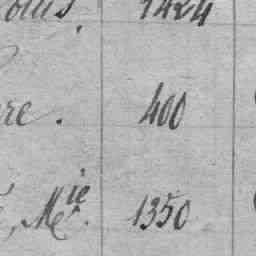 1424
re. 400
, Mie. 1350